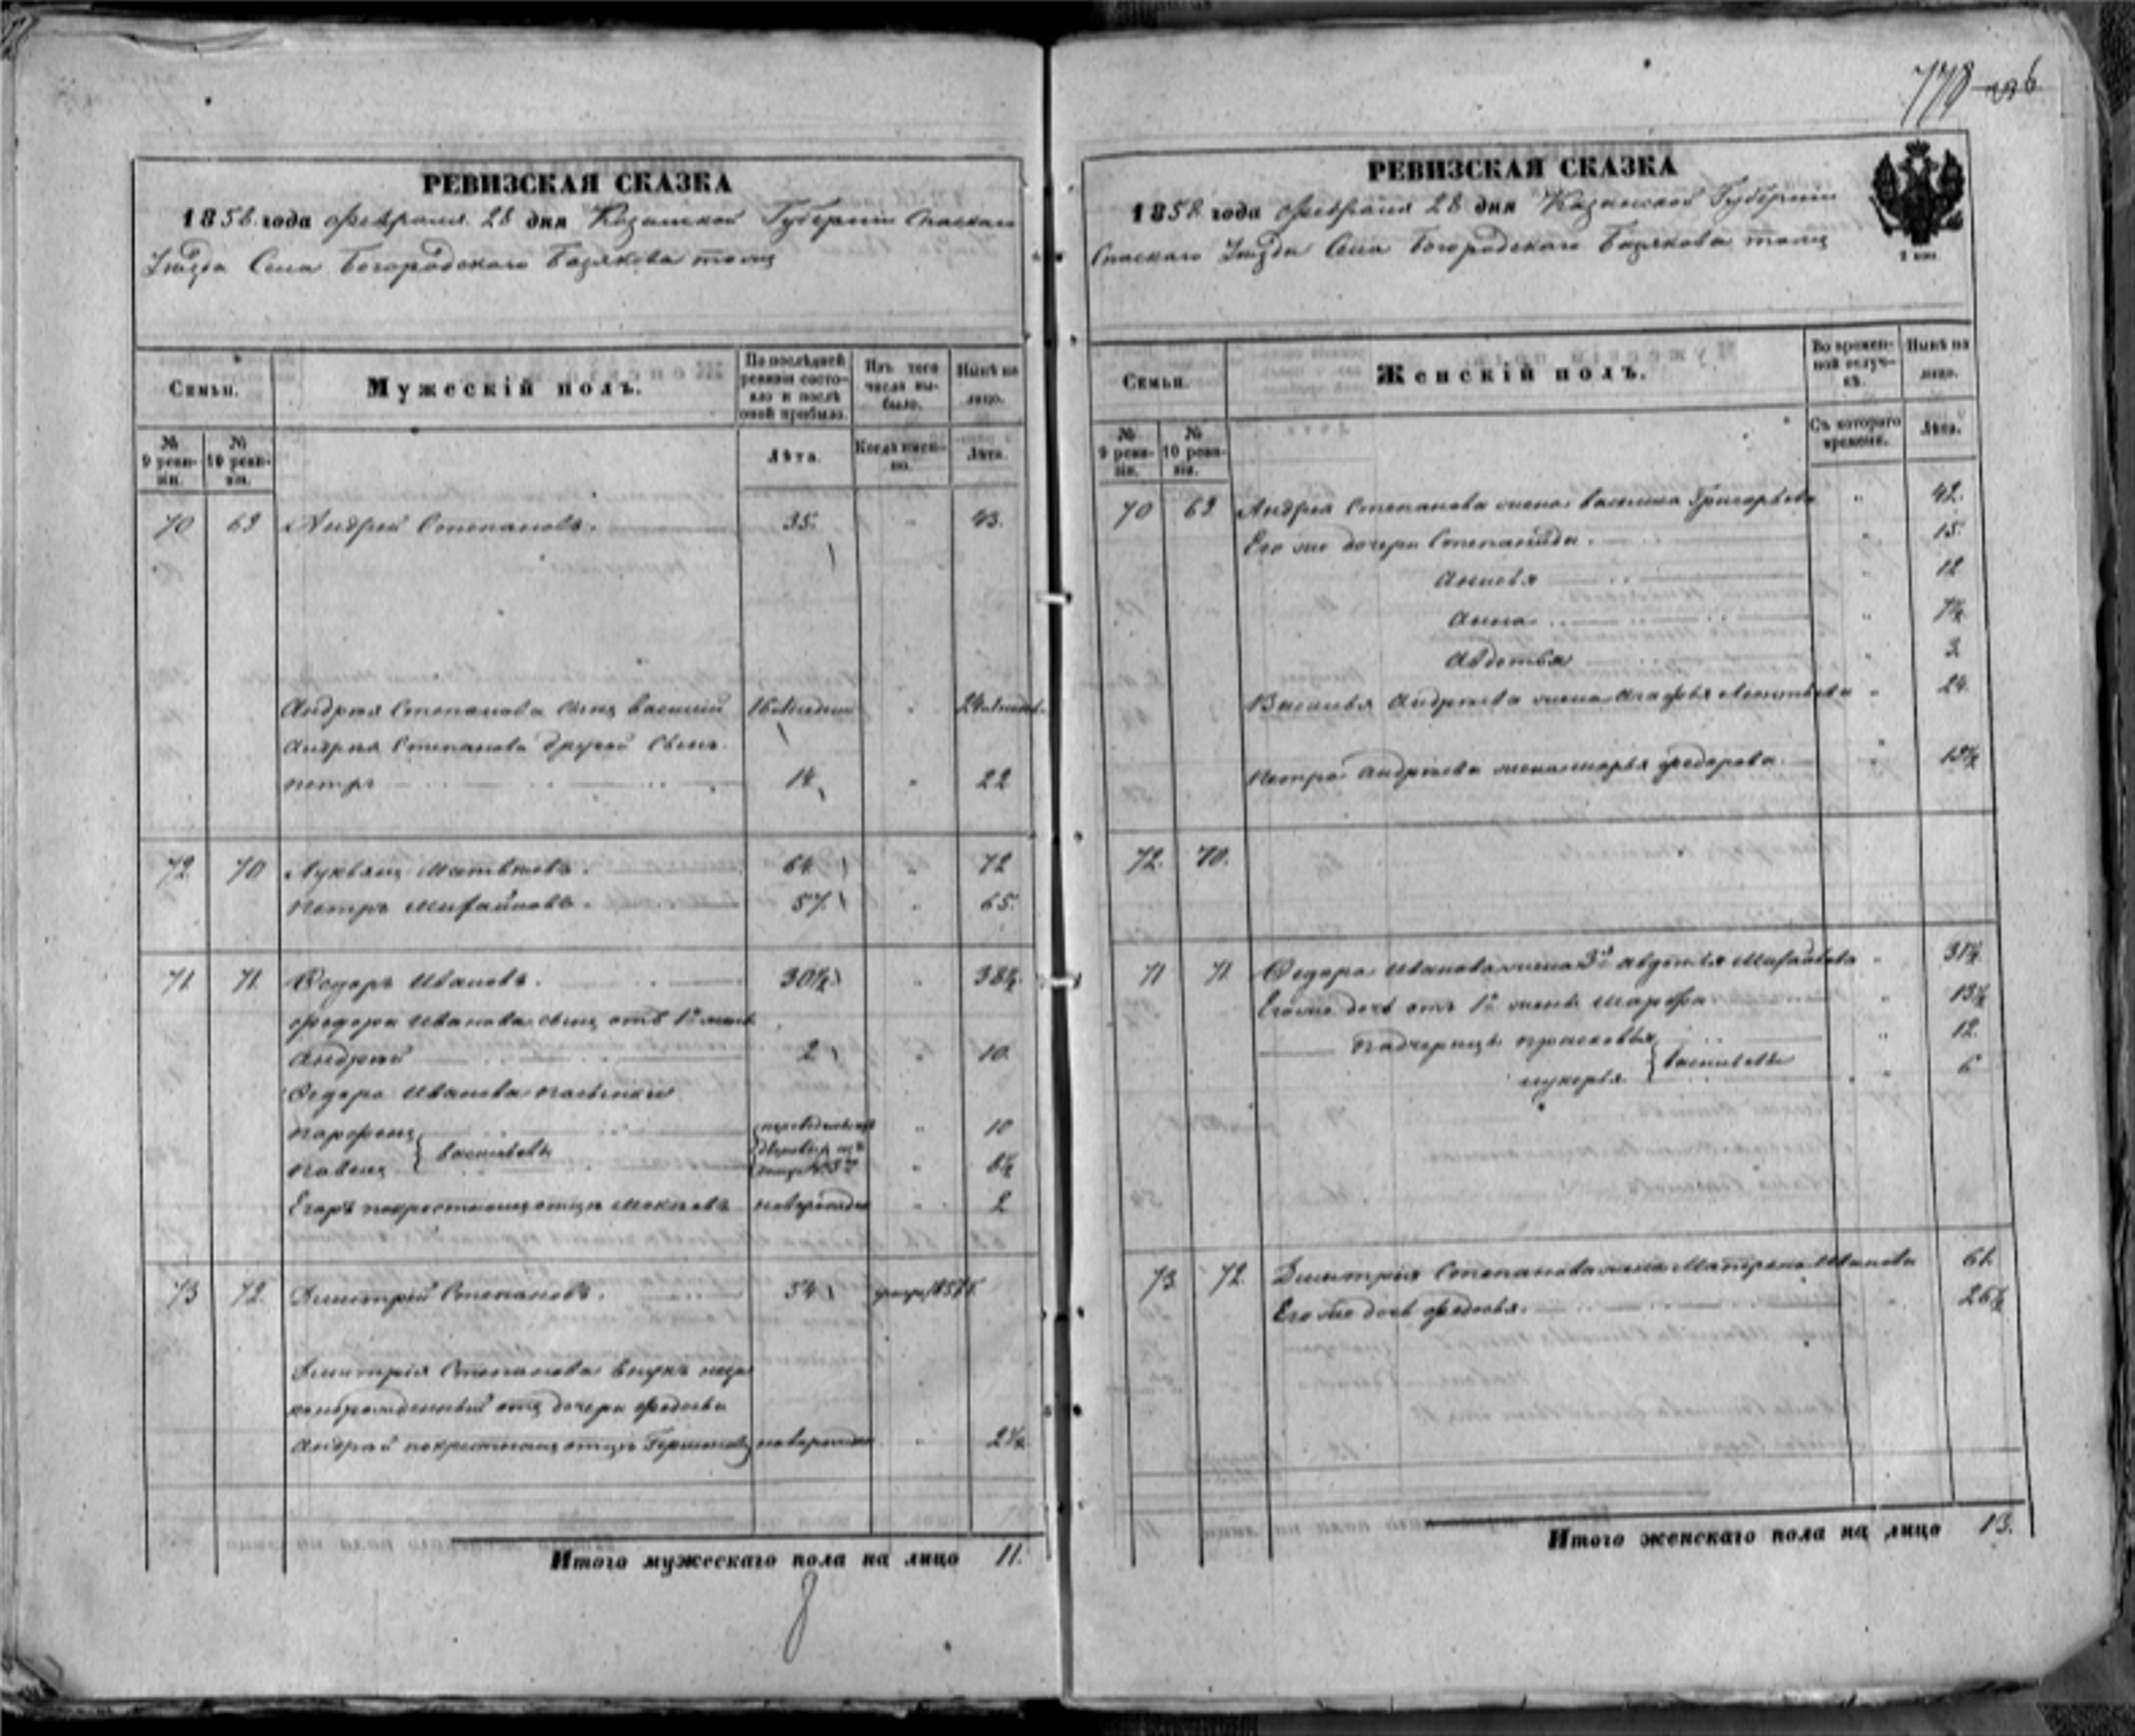 778
РЕВИЗСКАЯ СКАЗКА
1858 года февраля 28 дня Казанской Губернии Спаскаго
Уѣзда Села Богородскаго Базякова тожъ
Семьи.
Мужескій полъ.
По послѣдней ревизіи состояло и послѣ оной прибыло.
Изъ того числа выбыло.
Нынѣ на лицо.
№ 9 ревизіи.
№ 10 ревизіи.
Лѣта.
Когда именно.
Лѣта.
70 69 Андрей Степановъ. 35. " 43.
Андрея Степанова сынъ василій 16 " 24
Андрея Степанова другой Сынъ.
петръ 14 " 22
72 70 Лукьянъ Матвѣевъ. 64 " 72
Петръ Михайловъ. 57 " 65.
71 71 Федоръ Ивановъ. 30½ " 38½.
федора Иванова сынъ отъ 1й жены
Андрей 2 " 10.
Федора Иванова пасынки
парфенъ " 10
павелъ } васильевы " 8½
Егоръ покрестному отцу новорожден " 2
73 72 Дмитрій Степановъ. 54
Дмитрія Степанова внукъ неза
коннорожденный отъ дочери федосьи
Андрей покрестному отцу новорожден " 2½
Итого мужескаго пола на лицо 11.
РЕВИЗСКАЯ СКАЗКА
1858 года февраля 28 дня Казанской Губерніи
Спаскаго Уѣзда Села Богородскаго Базякова тожъ
Семьи.
Женскій полъ.
Во временной отлучкѣ.
Нынѣ на лицо.
№ 9 ревизіи.
№ 10 ревизіи.
Съ котораго времени.
Лѣта.
70 69 Андрея Степанова жена василиса Григорьева " 42.
Его же дочери Степанида. " 15.
Анисья " 12
Анна " 7½
Авдотья " 3
Василья Андреева жена Агафья Леонтьева " 24.
Петра Андреева жена марья федорова " 19½
72. 70.
71 71 Федора Иванова жена 3я авдотья Михайлова " 31½
Его же дочь отъ 1й жены Марфа " 13½
Падчерицы прасковья " 12.
лукерья } васильевы " 6
73 72 Дмитрія Степанова жена Матрена Иванова 61.
Его же дочь федосья. " 26½
Итого женскаго пола на лицо 13.